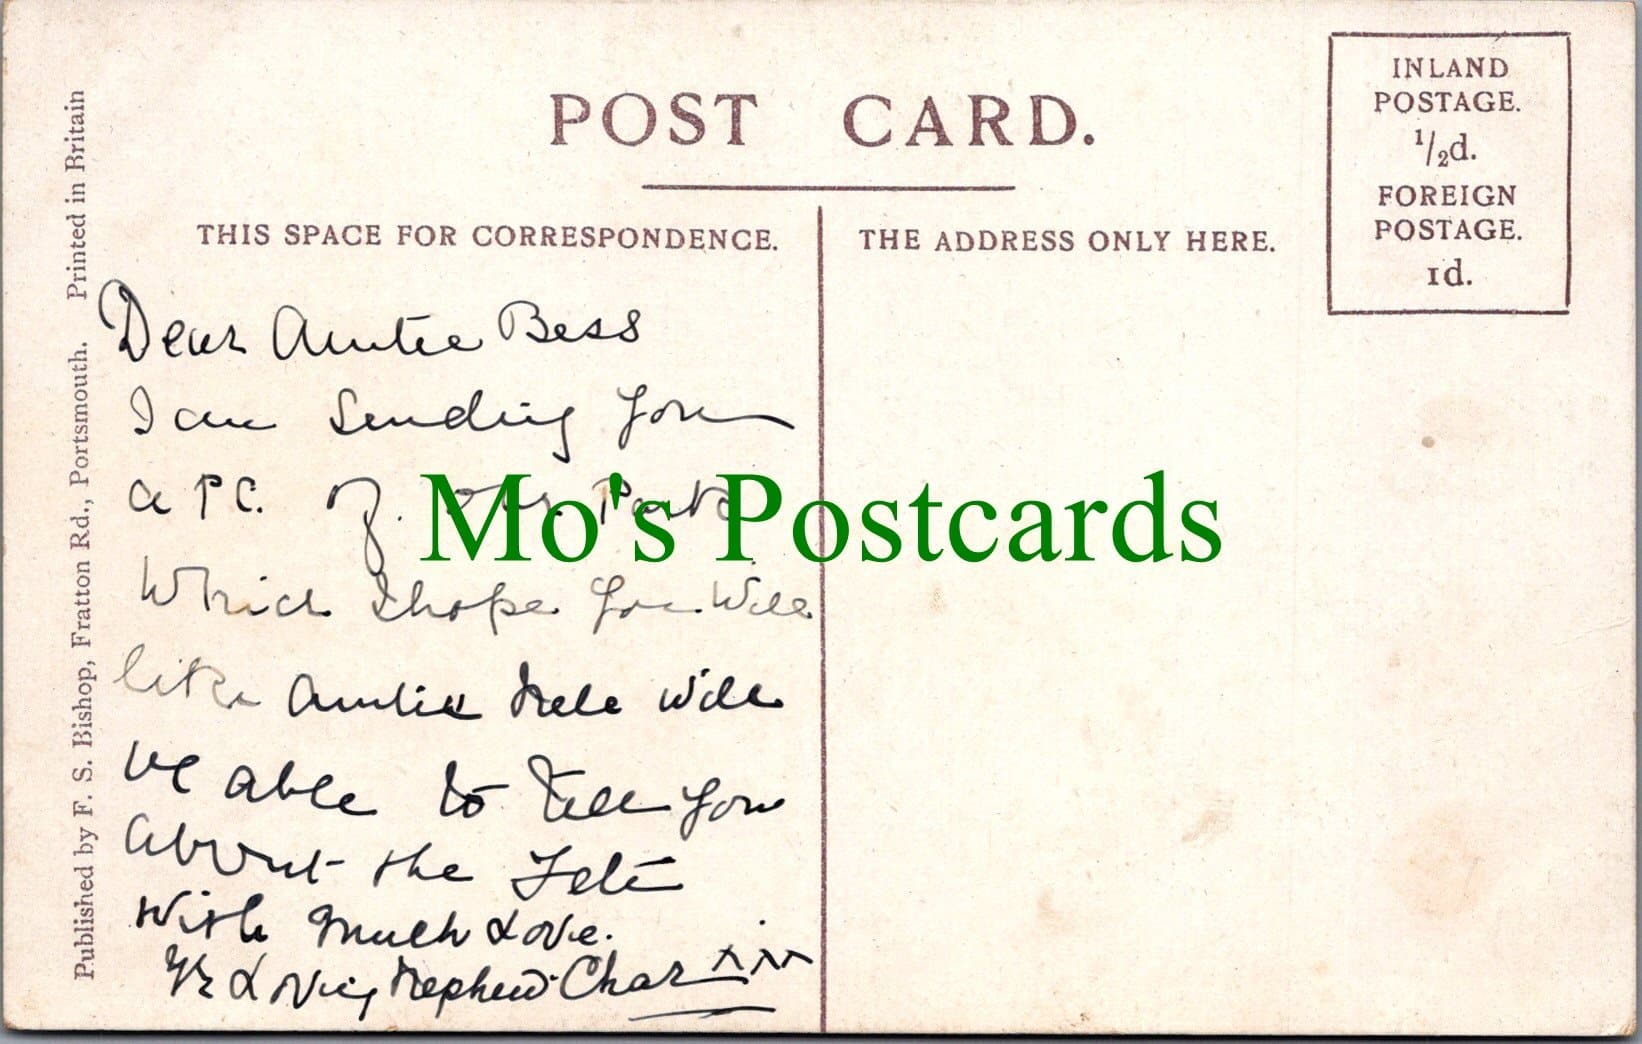 POST CARD.
INLAND
POSTAGE.
1/2d.
FOREIGN
POSTAGE.
1d.
THIS SPACE FOR CORRESPONDENCE.
THE ADDRESS ONLY HERE.
Dear Auntie Bess
I am Sending you
a P.C. of. our Park
Which I hope you Will
like Auntie Nele will
be able to Tell you
about the Fete
With Much Love.
Yr Loving Nephew Chas xxx
Published by F. S. Bishop, Fratton Rd., Portsmouth. Printed in Britain
Mo's Postcards